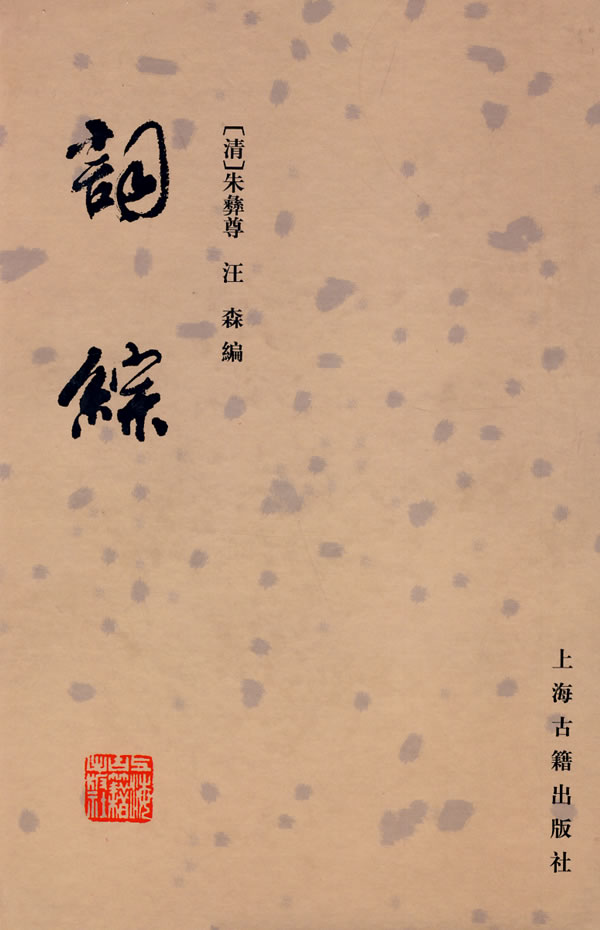 詞綜
〔清〕朱彝尊 汪森編
上海古籍出版社
上海古籍出版社